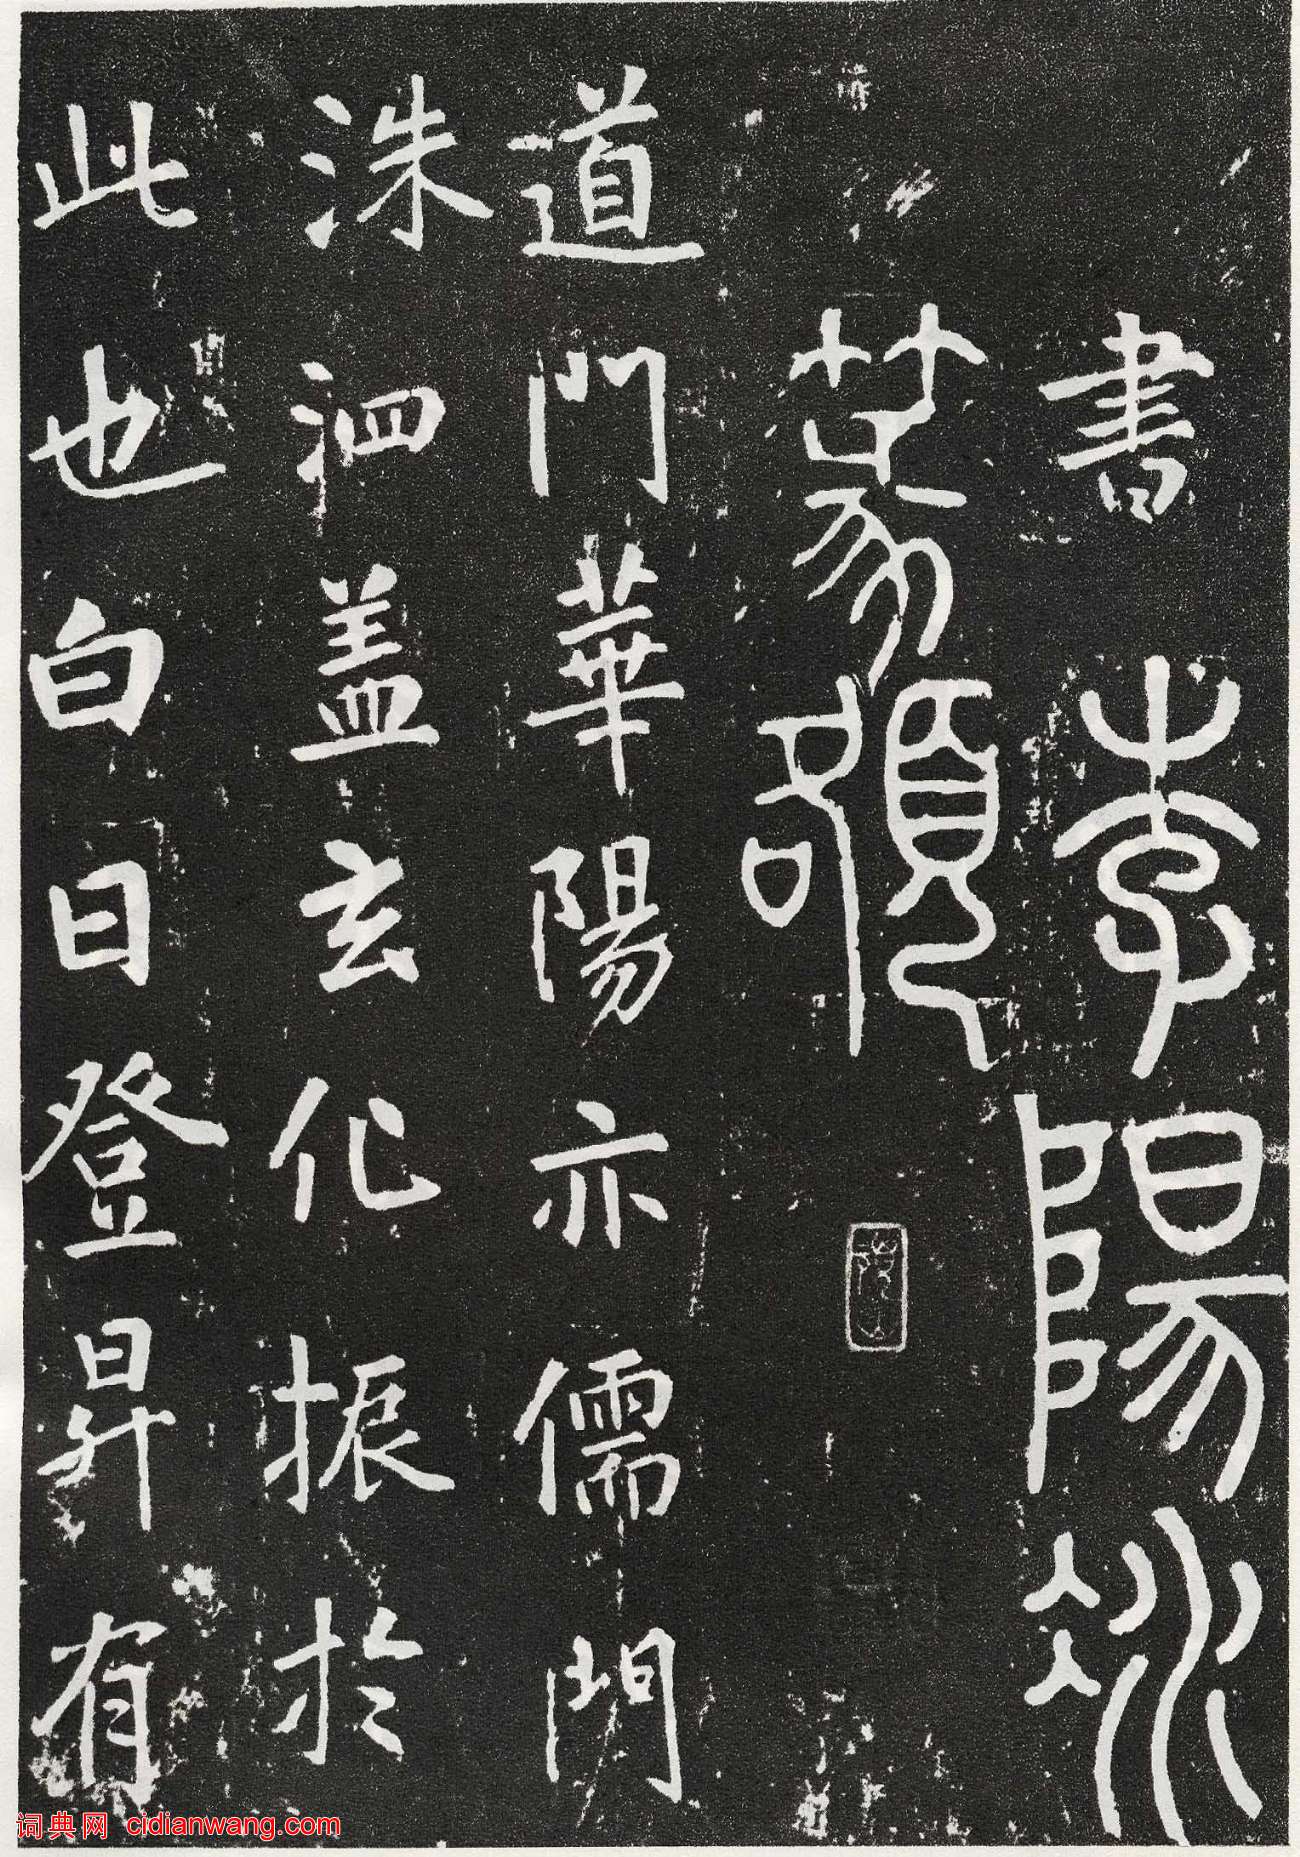 書 李陽冰
篆額
道門華陽亦儒門
洙泗盖玄化振於
此也白日登昇有
词典网 cidianwang.com